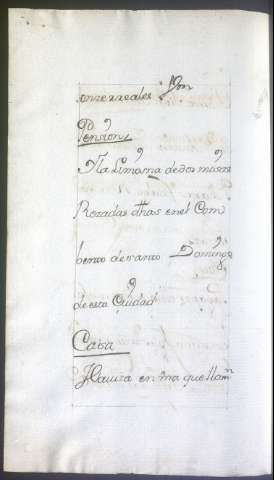 onze rreales Yvn
Pension
Y la Limosna de dos misas
Rezadas dhas en el Com
bento de santo Domingo
de esta Ciudad
Casa
Y Una casa en ma que llamn